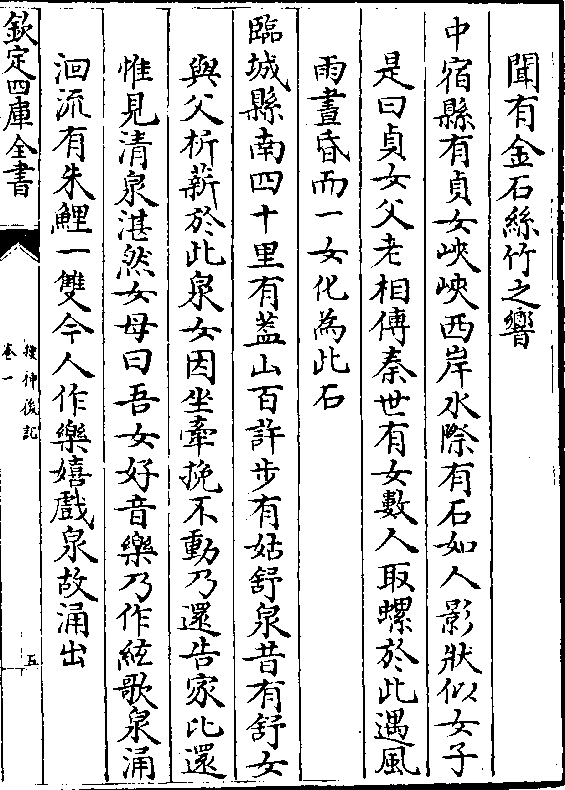 聞有金石絲竹之響
中宿縣有貞女峽峽西岸水際有石如人影狀似女子
是曰貞女父老相傳秦世有女數人取螺於此遇風
雨晝昏而一女化為此石
臨城縣南四十里有葢山百許步有姑舒泉昔有舒女
與父析薪於此泉女因坐牽挽不動乃還告家比還
惟見清泉湛然女母曰吾女好音樂乃作絃歌泉涌
洄流有朱鯉一雙今人作樂嬉戲泉故涌出
欽定四庫全書
搜神後記
卷一
五